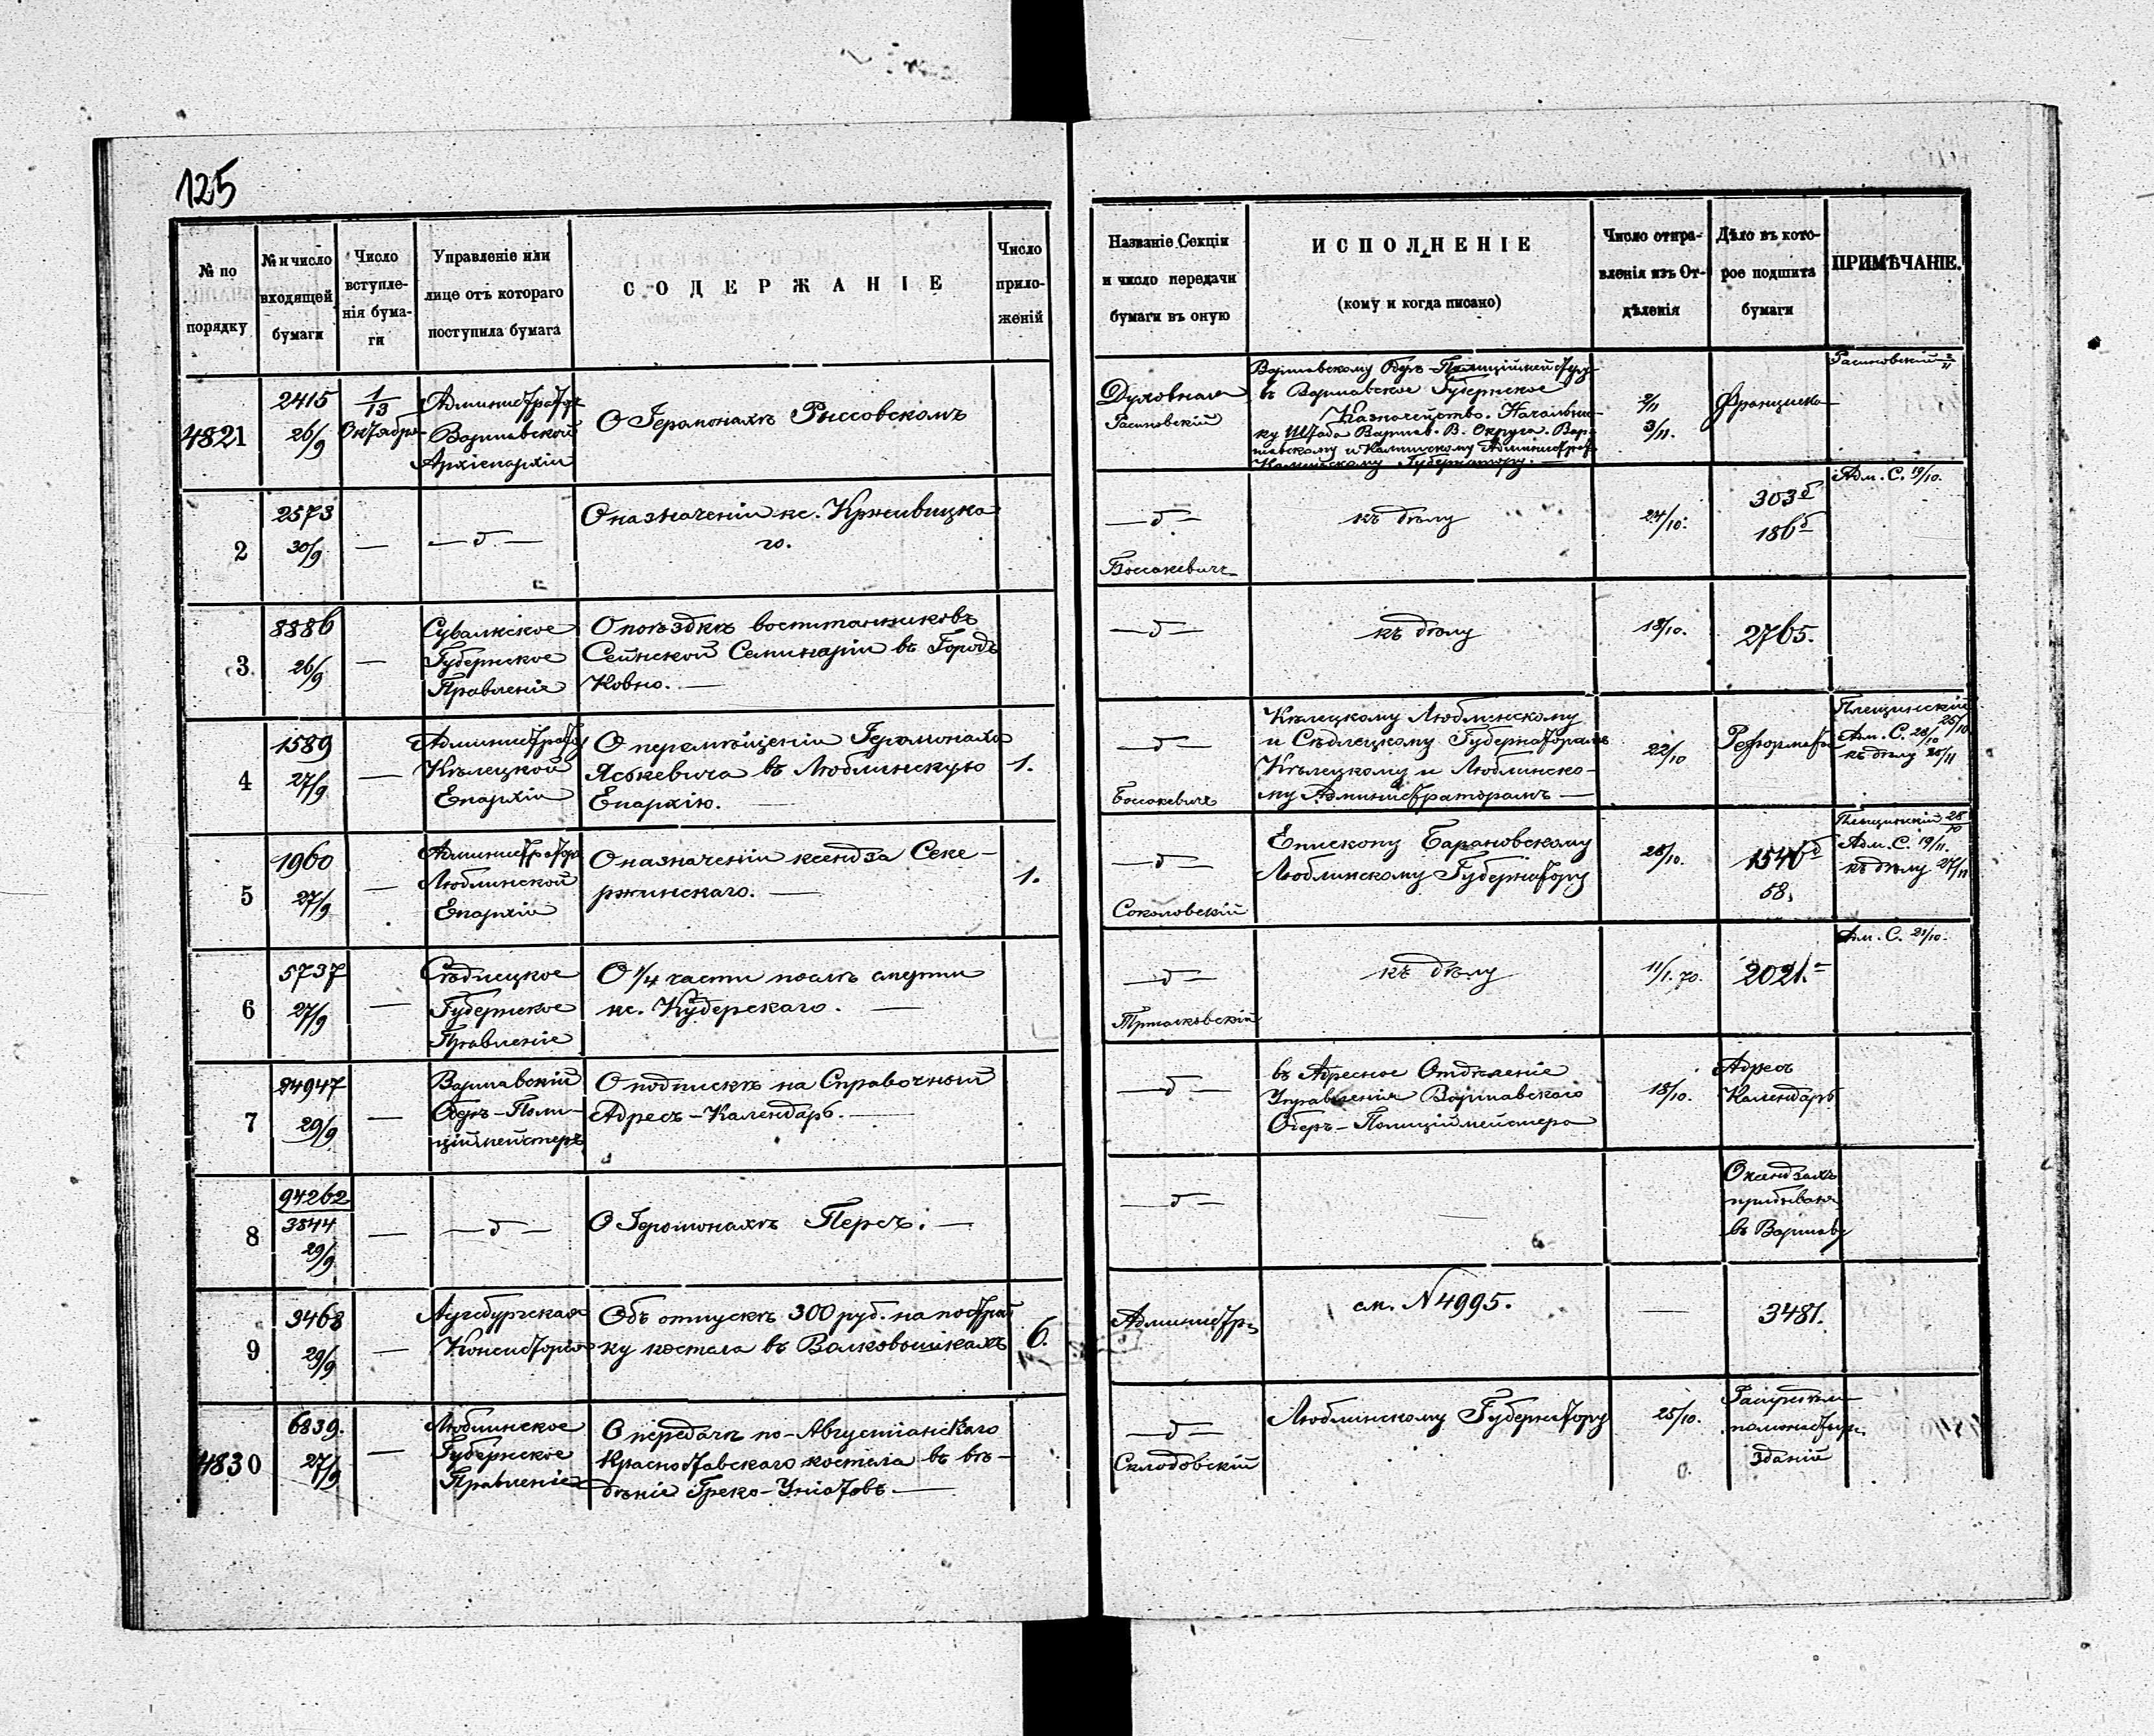 125
№ по порядку
№ и число входящей бумаги
Число вступленія бумаги
Управленіе или лице отъ котораго поступила бумага
СОДЕРЖАНІЕ
Число приложеній
Названіе Секціи и число передачи бумаги въ оную
ИСПОЛНЕНІЕ
(кому и когда писано)
Число отправленія изъ Отдѣленія
Дѣло въ которое подшита бумаги
ПРИМѢЧАНІЕ.
4821
2415
26/9
1/13
Октября
Администраторъ
Варшавской
Архіепархіи
О Іеромонахѣ Рыссовскомъ
Духовная
Варшавскому Оберъ-Полиціймейстеру
въ Варшавское Губернское
Казначейство. Начальни-
ку Штаба Варшав. В. Округа. Вар-
шавскому и Калишскому Администрат.
Калишскому Губернатору.
2/11
3/11.
Франциска
2
2573
30/9
—
— д —
О назначеніи кс. Крживицка
го.
— д —
Боссакевичъ
къ дѣлу
24/10.
303 д
186 д
Адм. С. 19/10.
3
8886
26/9
—
Сувалкское
Губернское
Правленіе
О поѣздкѣ воспитанниковъ
Сейнской Семинаріи въ Городъ
Ковно. —
— д —
къ дѣлу
18/10.
2765.
4
1589
27/9
—
Администраторъ
Кѣлецкой
Епархіи
О перемѣщеніи Іеромонаха
Яськевича въ Люблинскую
Епархію. —
1.
— д —
Боссакевичъ
Кѣлецкому Люблинскому
и Сѣдлецкому Губернаторамъ
Кѣлецкому и Люблинско-
му Администраторамъ —
22/10
Реформата
Плещинскій
25/10
Адм. С. 28/10
къ дѣлу 25/11
5
1960
27/9
—
Администраторъ
Люблинской
Епархіи
О назначеніи ксендза Секе-
ржинскаго. —
1.
— д —
Соколовскій
Епископу Барановскому
Люблинскому Губернатору
28/10.
1546 д
58.
Плещинскій 28/10
Адм. С. 19/11.
къ дѣлу 27/11
6
5737
27/9
—
Сѣдлецкое
Губернское
Правленіе
О 1/4 части послѣ смерти
кс. Кудерскаго. —
— д —
къ дѣлу
11/1. 70.
2021.
Адм. С. 21/10.
7
24947
29/9
—
Варшавскій
Оберъ-Поли-
ціймейстеръ
О подпискѣ на Справочный
Адресъ-Календарь. —
— д —
въ Адресное Отдѣленіе
Управленія Варшавскаго
Оберъ-Полиціймейстера
18/10.
Адресъ
Календарь
8
94262
3844
29/9
—
— д —
О Іеромонахѣ Персъ. —
— д —
—
О ксендзахъ
прибывая
въ Варшаву
9
3468
29/9
—
Аугсбургская
Консисторія
Объ отпускѣ 300 руб. на построй
ку костела въ Волковышкахъ
6.
Администр.
см. N 4995.
—
3481.
4830
6839.
27/9
—
Люблинское
Губернское
Правленіе
О передачѣ по-Августіанскаго
Красноставскаго костела въ вѣ-
дѣніе Греко-Уніатовъ —
— д —
Склодовскій
Люблинскому Губернатору
25/10.
зданій